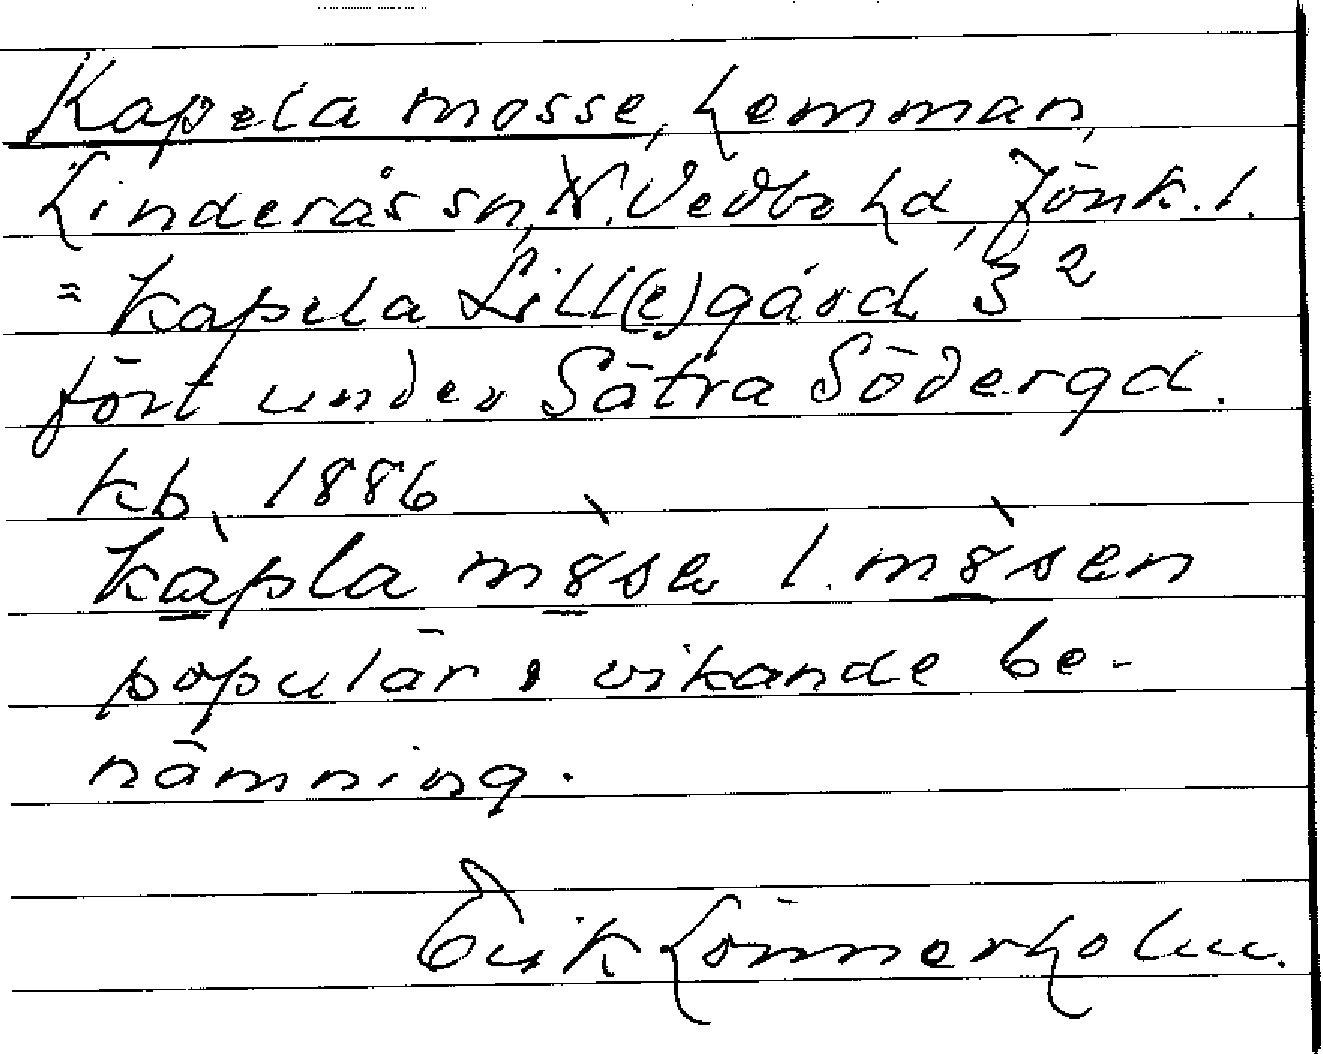 Kapela mosse, hemman,
Linderås sn, N. Vedbo hd, Jönk. l.
= Kapela Lill(e)gård 3²
fört under Sätra Södergd.
kb. 1886
kàpla mò̀se l. mò̀sen
populär, vikande be-
nämning.
Erik Lönnerholm.